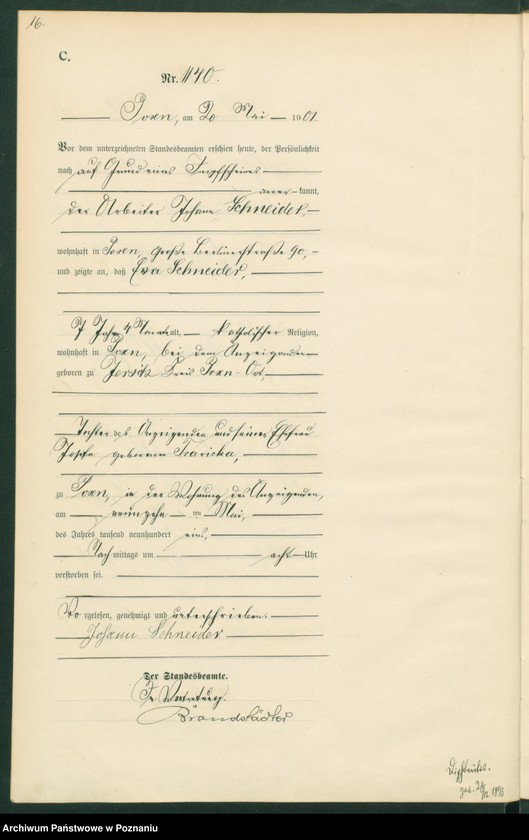 16.
C.
Nr. 1140.
Posen, am 20 Mai 1901.
Vor dem unterzeichneten Standesbeamten erschien heute, der Persönlichkeit
nach auf Grund eines Impfscheines
aner- kannt,
der Arbeiter Johann Schneider,
wohnhaft in Posen, Große Berlinerstraße 90,
und zeigte an, daß Eva Schneider,
7 Jahre 4 Monate alt, katholischer Religion,
wohnhaft in Posen, bei dem Anzeigenden
geboren zu Jersitz Kreis Posen-Ost,
Tochter des Anzeigenden und seiner Ehefrau
geborenen
zu Posen, in der Wohnung des Anzeigenden,
am neunzehn ten Mai,
des Jahres tausend neunhundert eins,
Nach mittags um acht Uhr
verstorben sei.
Vorgelesen, genehmigt und unterschrieben.
Johann Schneider
Der Standesbeamte.
In Vertretung.
Brandstädter
Diphteritis.
geb.
Archiwum Państwowe w Poznaniu